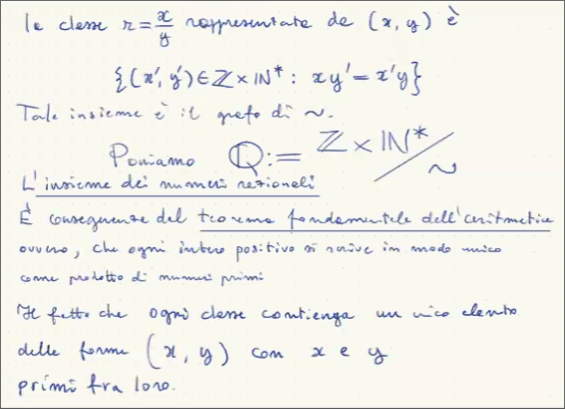 la classe r = x/y rappresentata da (x, y) è
{(x', y') ∈ ℤ × ℕ* : xy' = x'y}
Tale insieme è il grafo di ~.
Poniamo ℚ := ℤ × ℕ* / ~
L'insieme dei numeri razionali
È conseguenza del teorema fondamentale dell'aritmetica
ovvero, che ogni intero positivo si scrive in modo unico
come prodotto di numeri primi
Il fatto che ogni classe contenga un unico elemento
della forma (x, y) con x e y
primi fra loro.